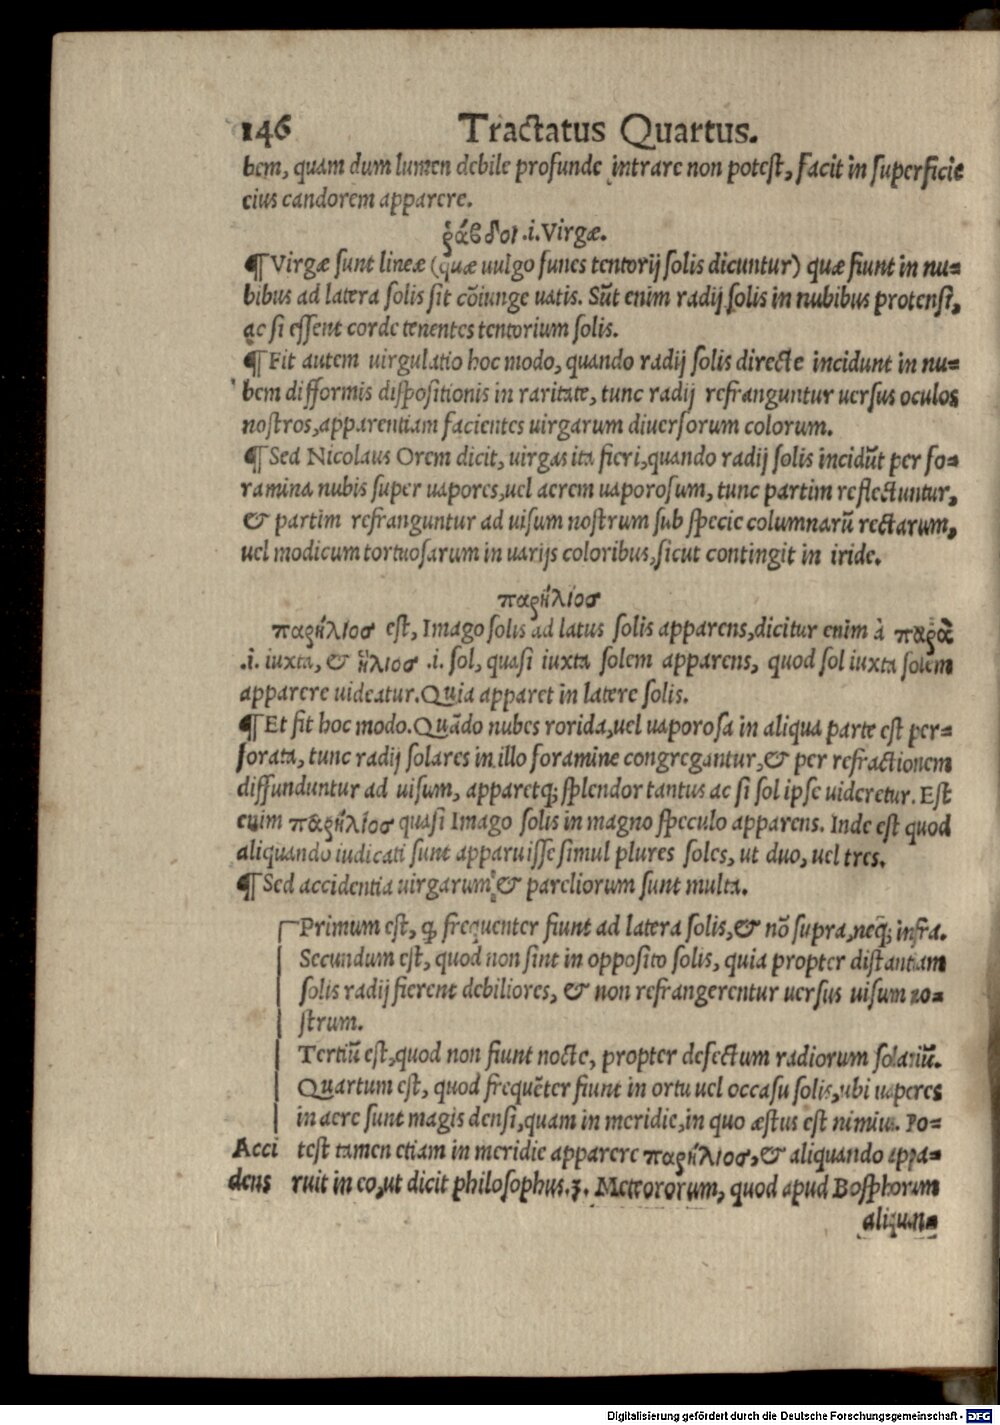 146 Tractatus Quartus.
bem, quam dum lumen debile profunde intrare non potest, facit in superficie
eius candorem apparere.
ῥάβδοι .i. Virgæ.
¶ Virgæ sunt lineæ (quæ uulgo funes tentorij solis dicuntur) quæ fiunt in nu=
bibus ad latera solis sit cõiunge uatis. Sũt enim radij solis in nubibus protensi,
ac si essent corde tenentes tentorium solis.
¶ Fit autem uirgulatio hoc modo, quando radij solis directe incidunt in nu=
bem difformis dispositionis in raritate, tunc radij refranguntur uersus oculos
nostros, apparentiam facientes uirgarum diuersorum colorum.
¶ Sed Nicolaus Orem dicit, uirgas ita fieri, quando radij solis incidũt per fo=
ramina nubis super uapores, uel aerem uaporosum, tunc partim reflectuntur,
& partim refranguntur ad uisum nostrum sub specie columnarũ rectarum,
uel modicum tortuosarum in uarijs coloribus, sicut contingit in iride.
παρήλιος
παρήλιος est, Imago solis ad latus solis apparens, dicitur enim à παρὰ
.i. iuxta, & ἥλιος .i. sol, quasi iuxta solem apparens, quod sol iuxta solem
apparere uideatur. Quia apparet in latere solis.
¶ Et fit hoc modo. Quãdo nubes rorida, uel uaporosa in aliqua parte est per=
forata, tunc radij solares in illo foramine congregantur, & per refractionem
diffunduntur ad uisum, apparetq; splendor tantus ac si sol ipse uideretur. Est
enim παρήλιος quasi Imago solis in magno speculo apparens. Inde est quod
aliquando iudicati sunt apparuisse simul plures soles, ut duo, uel tres.
¶ Sed accidentia uirgarum & pareliorum sunt multa.
Primum est, ꝙ frequenter fiunt ad latera solis, & nõ supra, neq; infra.
Secundum est, quod non sint in opposito solis, quia propter distantiam
solis radij fierent debiliores, & non refrangerentur uersus uisum no=
strum.
Tertiũ est, quod non fiunt nocte, propter defectum radiorum solariũ.
Quartum est, quod frequẽter fiunt in ortu uel occasu solis, ubi uapores
in aere sunt magis densi, quam in meridie, in quo æstus est nimius. Po=
Acci test tamen etiam in meridie apparere παρήλιος, & aliquando appa=
dens ruit in eo, ut dicit philosophus. 3. Meteororum, quod apud Bosphorum
aliquan=
Digitalisierung gefördert durch die Deutsche Forschungsgemeinschaft - DFG